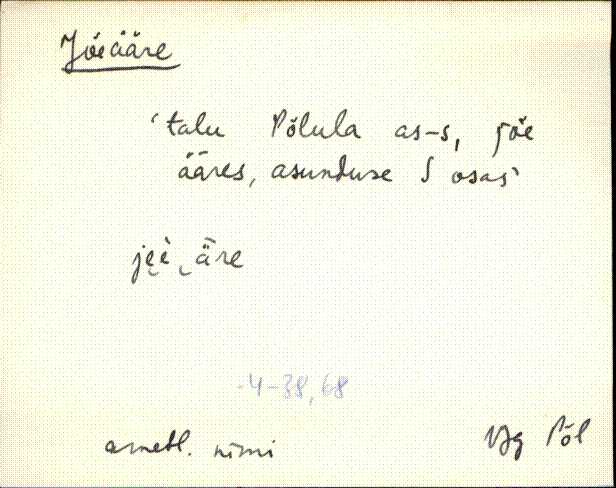 Jõeääre
‘talu Põlula as-s, jõe
ääres, asunduse S osas’
jẹè ̮äre
-4-38,68
ametl. nimi
VJg Põl